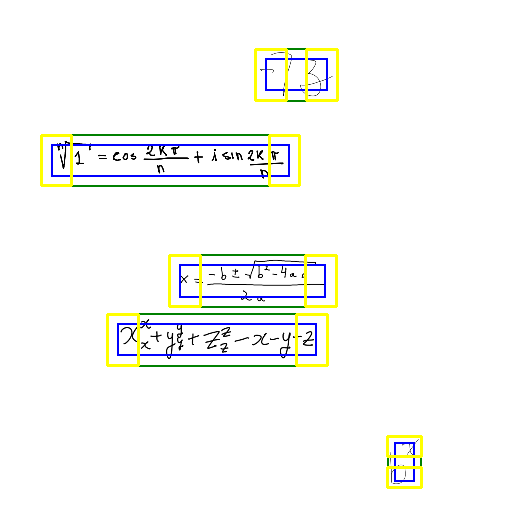 73
ⁿ√1 = cos 2kπ/n + i sin 2kπ/n
x = -b ± √b² - 4ac / 2a
x_x^x + y_y^y + z_z^z - x - y - z